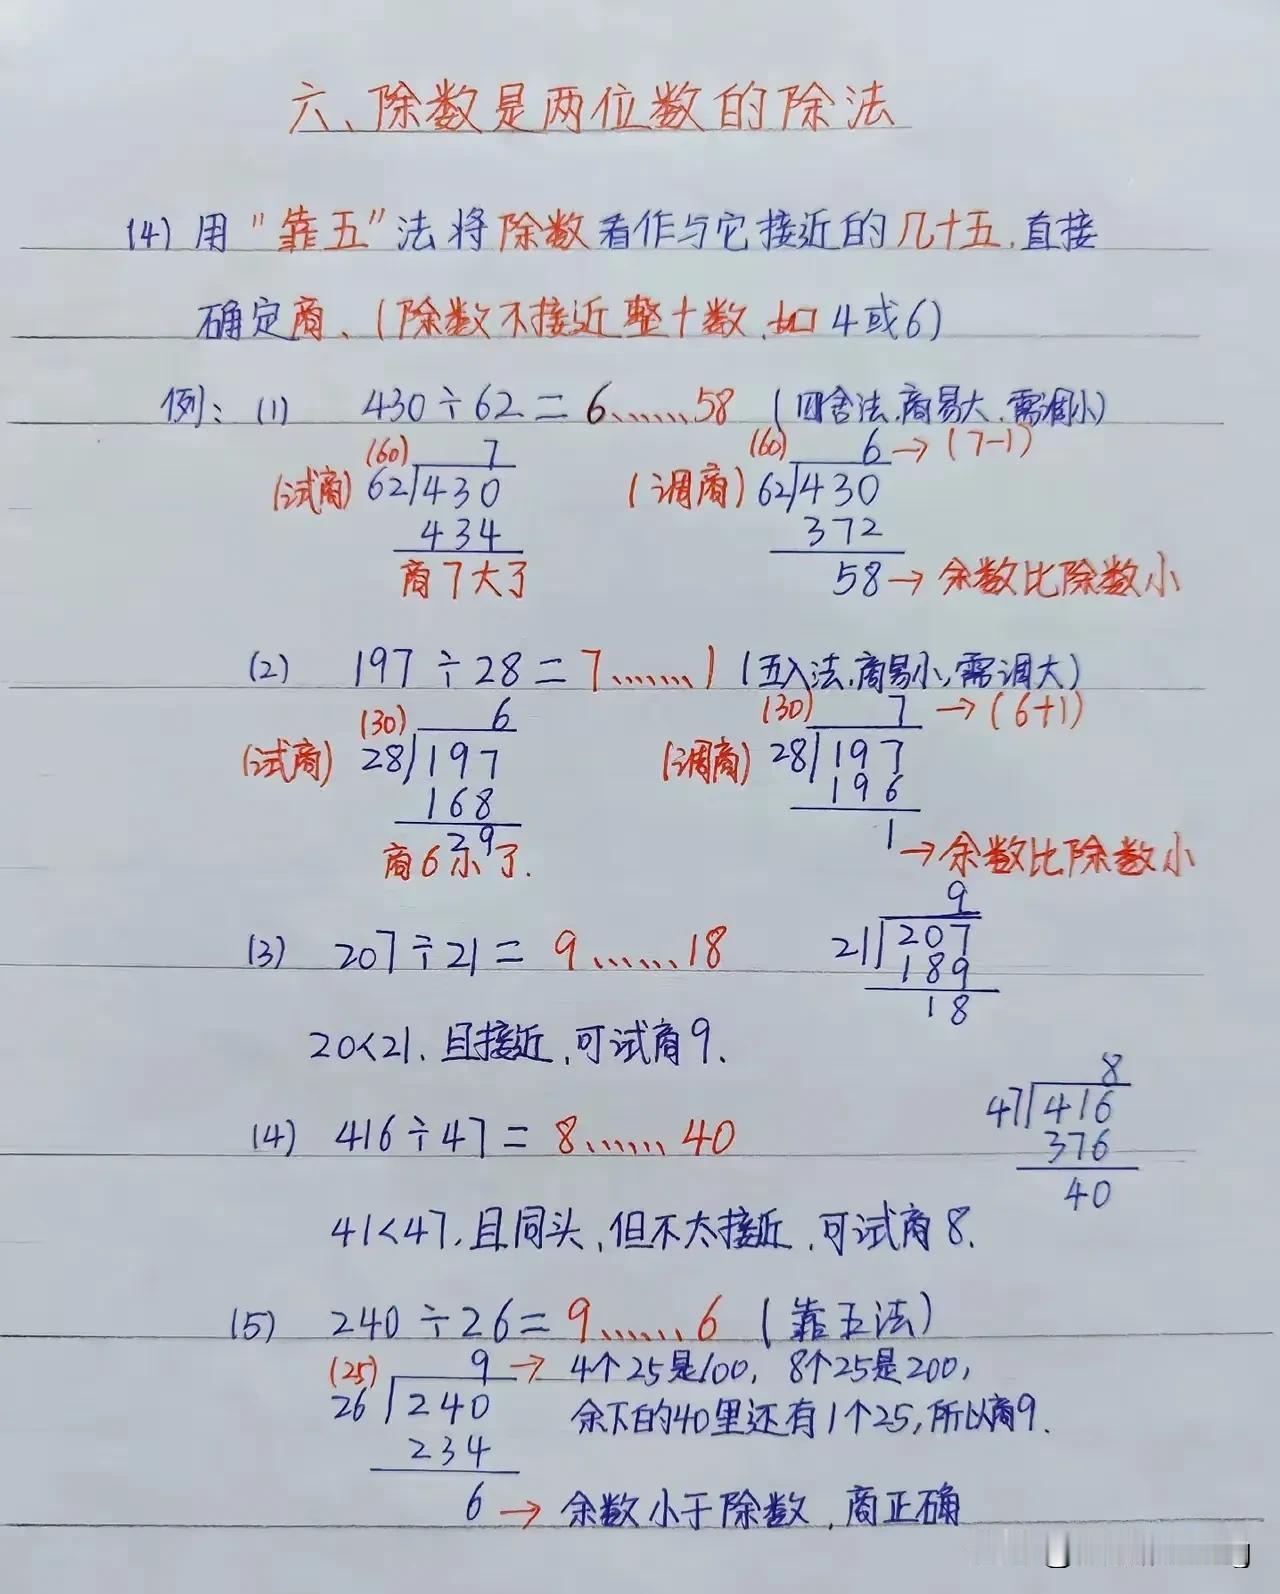 六、除数是两位数的除法
(4) 用“靠五”法将除数看作与它接近的几十五,直接
确定商、(除数不接近整十数,如4或6)
例: (1) 430÷62=6……58 (四舍法,商易大,需调小)
(60) 7
(试商) 62 430
434
商7大了
(60) 6→(7-1)
(调商) 62 430
372
58→余数比除数小
(2) 197÷28=7……1 (五入法,商易小,需调大)
(30) 6
(试商) 28 197
168
29
商6小了.
(30) 7→(6+1)
(调商) 28 197
196
1→余数比除数小
(3) 207÷21=9……18
9
21 207
189
18
20<21,且接近,可试商9.
(4) 416÷47=8……40
8
47 416
376
40
41<47,且同头,但不太接近,可试商8.
(5) 240÷26=9……6 (靠五法)
(25) 9→4个25是100, 8个25是200,
26 240 余下的40里还有1个25,所以商9.
234
6→余数小于除数,商正确